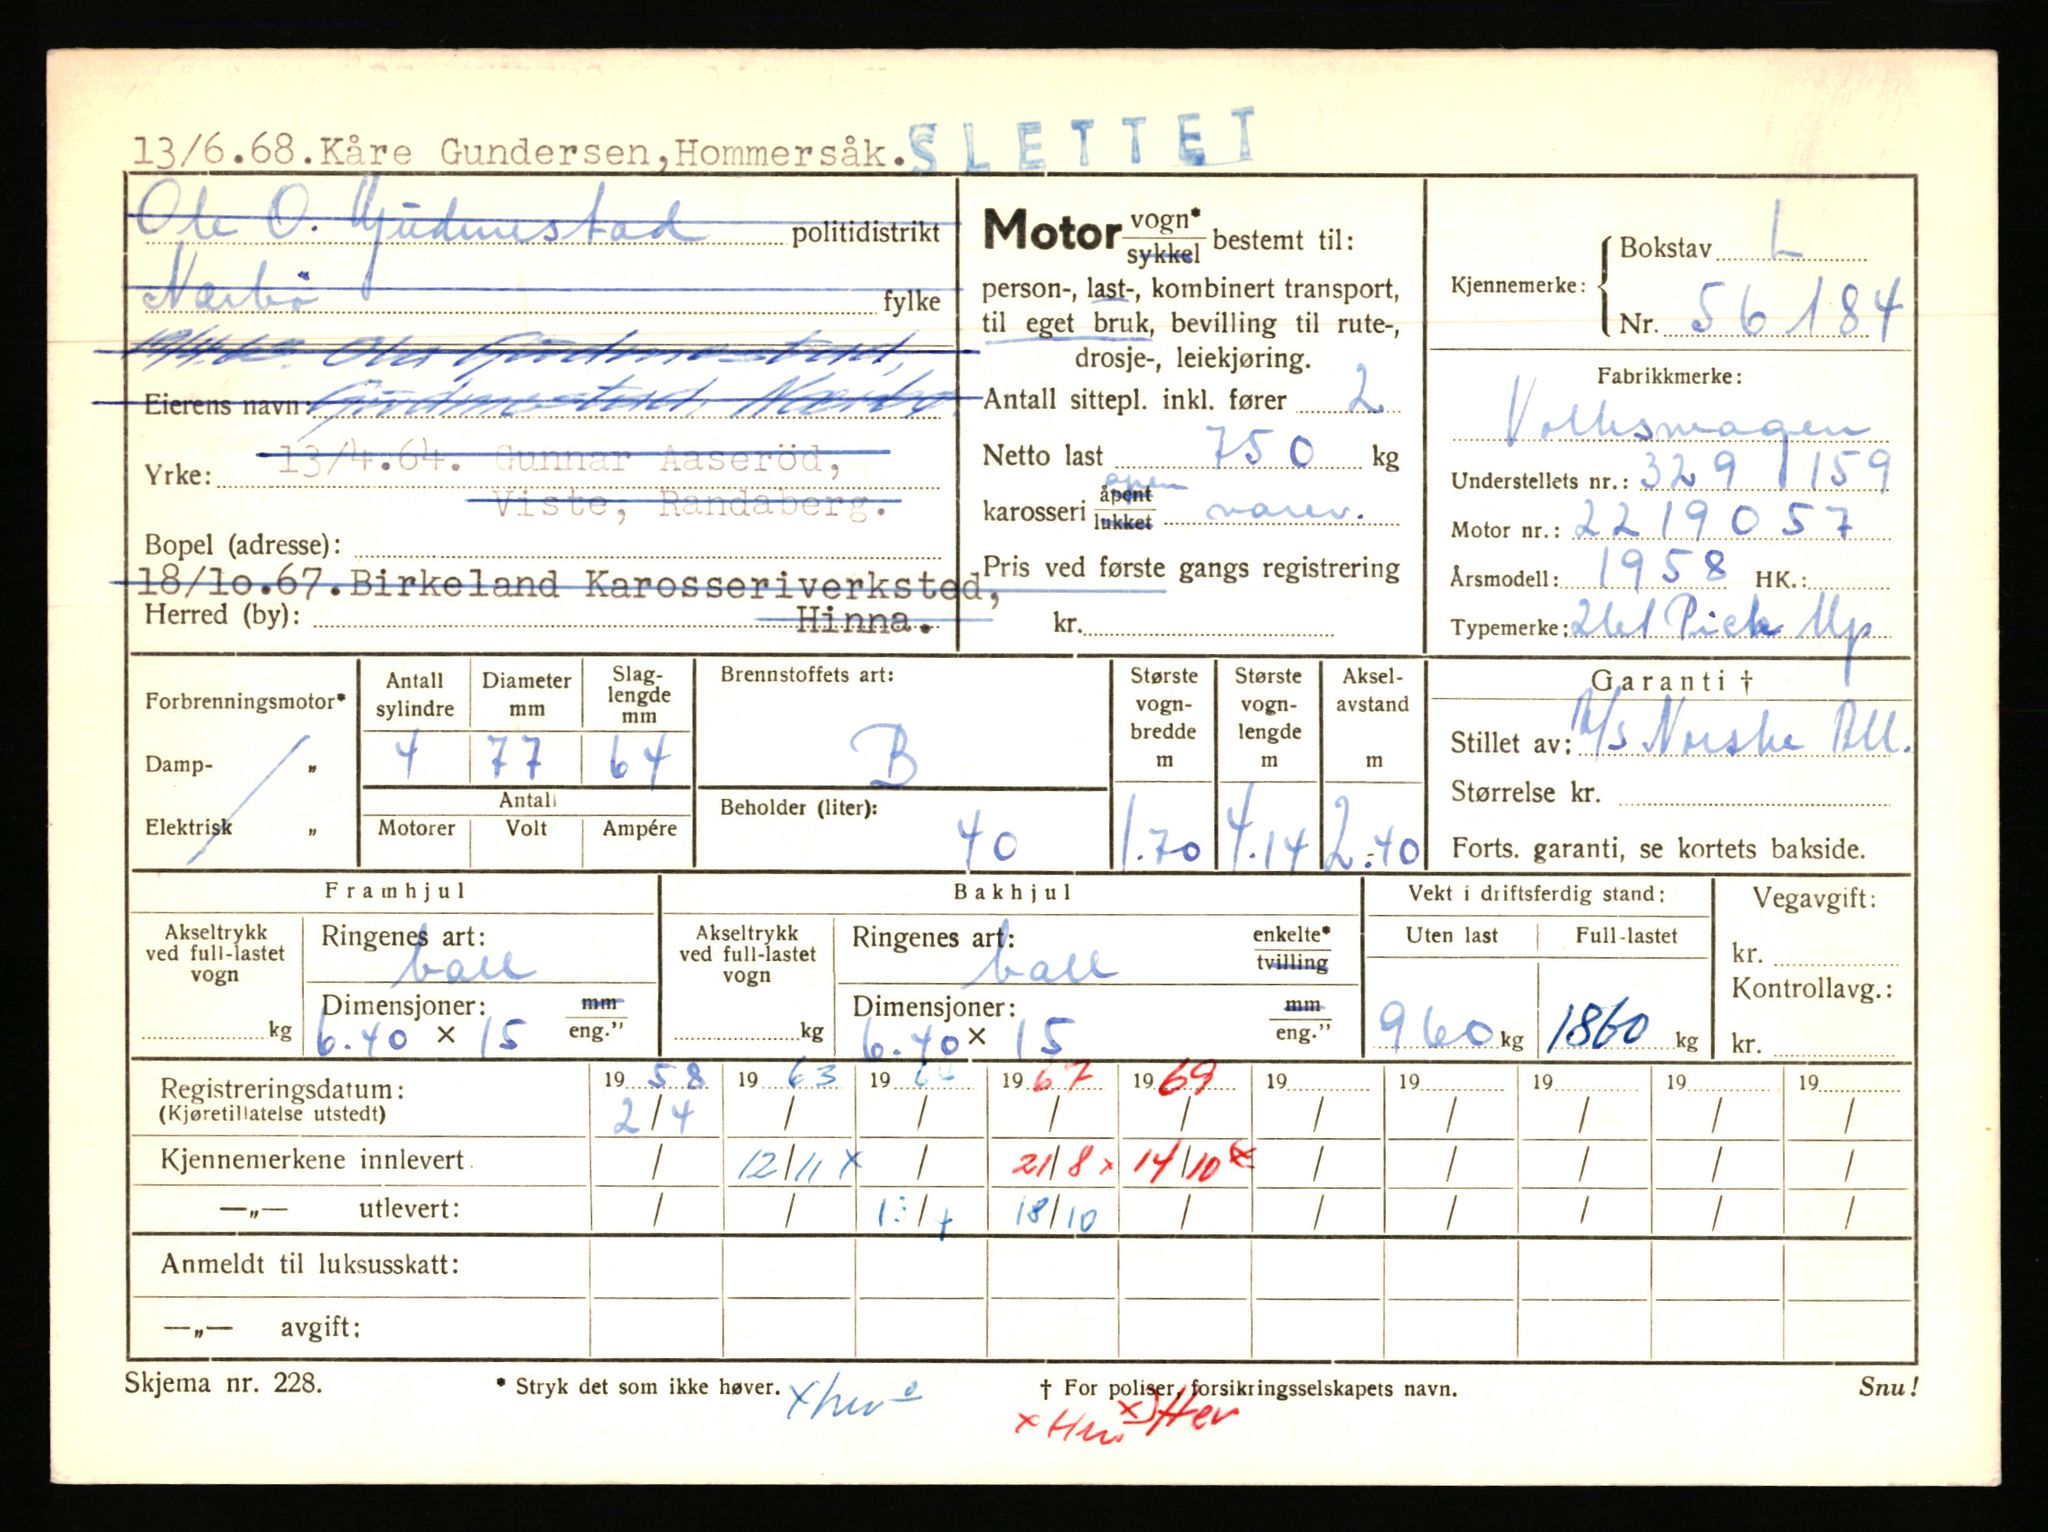 13/6.68. Kåre Gundersen, Hommersåk. SLETTET
Ole O. Gudmestad politidistrikt
Nærbø fylke
Ole Gudmestad,
Eierens navn: Gudmestad, Nærbø
Yrke: 13/4.64. Gunnar Aaseröd,
Viste, Randaberg.
Bopel (adresse):
18/10.67. Birkeland Karosseriverksted,
Herred (by): Hinna.
Motor vogn* sykkel bestemt til:
person-, last-, kombinert transport,
til eget bruk, bevilling til rute-,
drosje-, leiekjøring.
Antall sittepl. inkl. fører 2
Netto last 750 kg
åpen
karosseri åpent lukket varev.
Pris ved første gangs registrering
kr.
Kjennemerke: Bokstav L
Nr. 56184
Fabrikkmerke:
Volkswagen
Understellets nr.: 329 159
Motor nr.: 2219057
Årsmodell: 1958 HK.:
Typemerke: 261 Pick Up
Forbrenningsmotor*
Damp- „
Elektrisk „
Antall sylindre Diameter mm Slaglengde mm
4 77 64
Antall
Motorer Volt Ampére
Brennstoffets art:
B
Beholder (liter):
40
Største vognbredde m
1.70
Største vognlengde m
4.14
Akselavstand m
2.40
Garanti †
Stillet av: A/S Norske All.
Størrelse kr.
Forts. garanti, se kortets bakside.
Framhjul
Akseltrykk ved full-lastet vogn
kg
Ringenes art:
ball
Dimensjoner: mm
6.40 × 15 eng."
Bakhjul
Akseltrykk ved full-lastet vogn
kg
Ringenes art: enkelte* tvilling
ball
Dimensjoner: mm
6.40 × 15 eng."
Vekt i driftsferdig stand:
Uten last Full-lastet
960 kg 1860 kg
Vegavgift:
kr.
Kontrollavg.:
kr.
Registreringsdatum: 19 58 19 63 19 64 19 67 19 69 19 19 19 19 19
(Kjøretillatelse utstedt) 2/4 / / / / / / / / /
Kjennemerkene innlevert / 12/11 x / 21/8 x 14/10 x / / / / /
—„— utlevert: / / 13/4 18/10 / / / / / /
Anmeldt til luksusskatt:
—„— avgift:
Skjema nr. 228. * Stryk det som ikke høver. † For poliser, forsikringsselskapets navn. Snu!